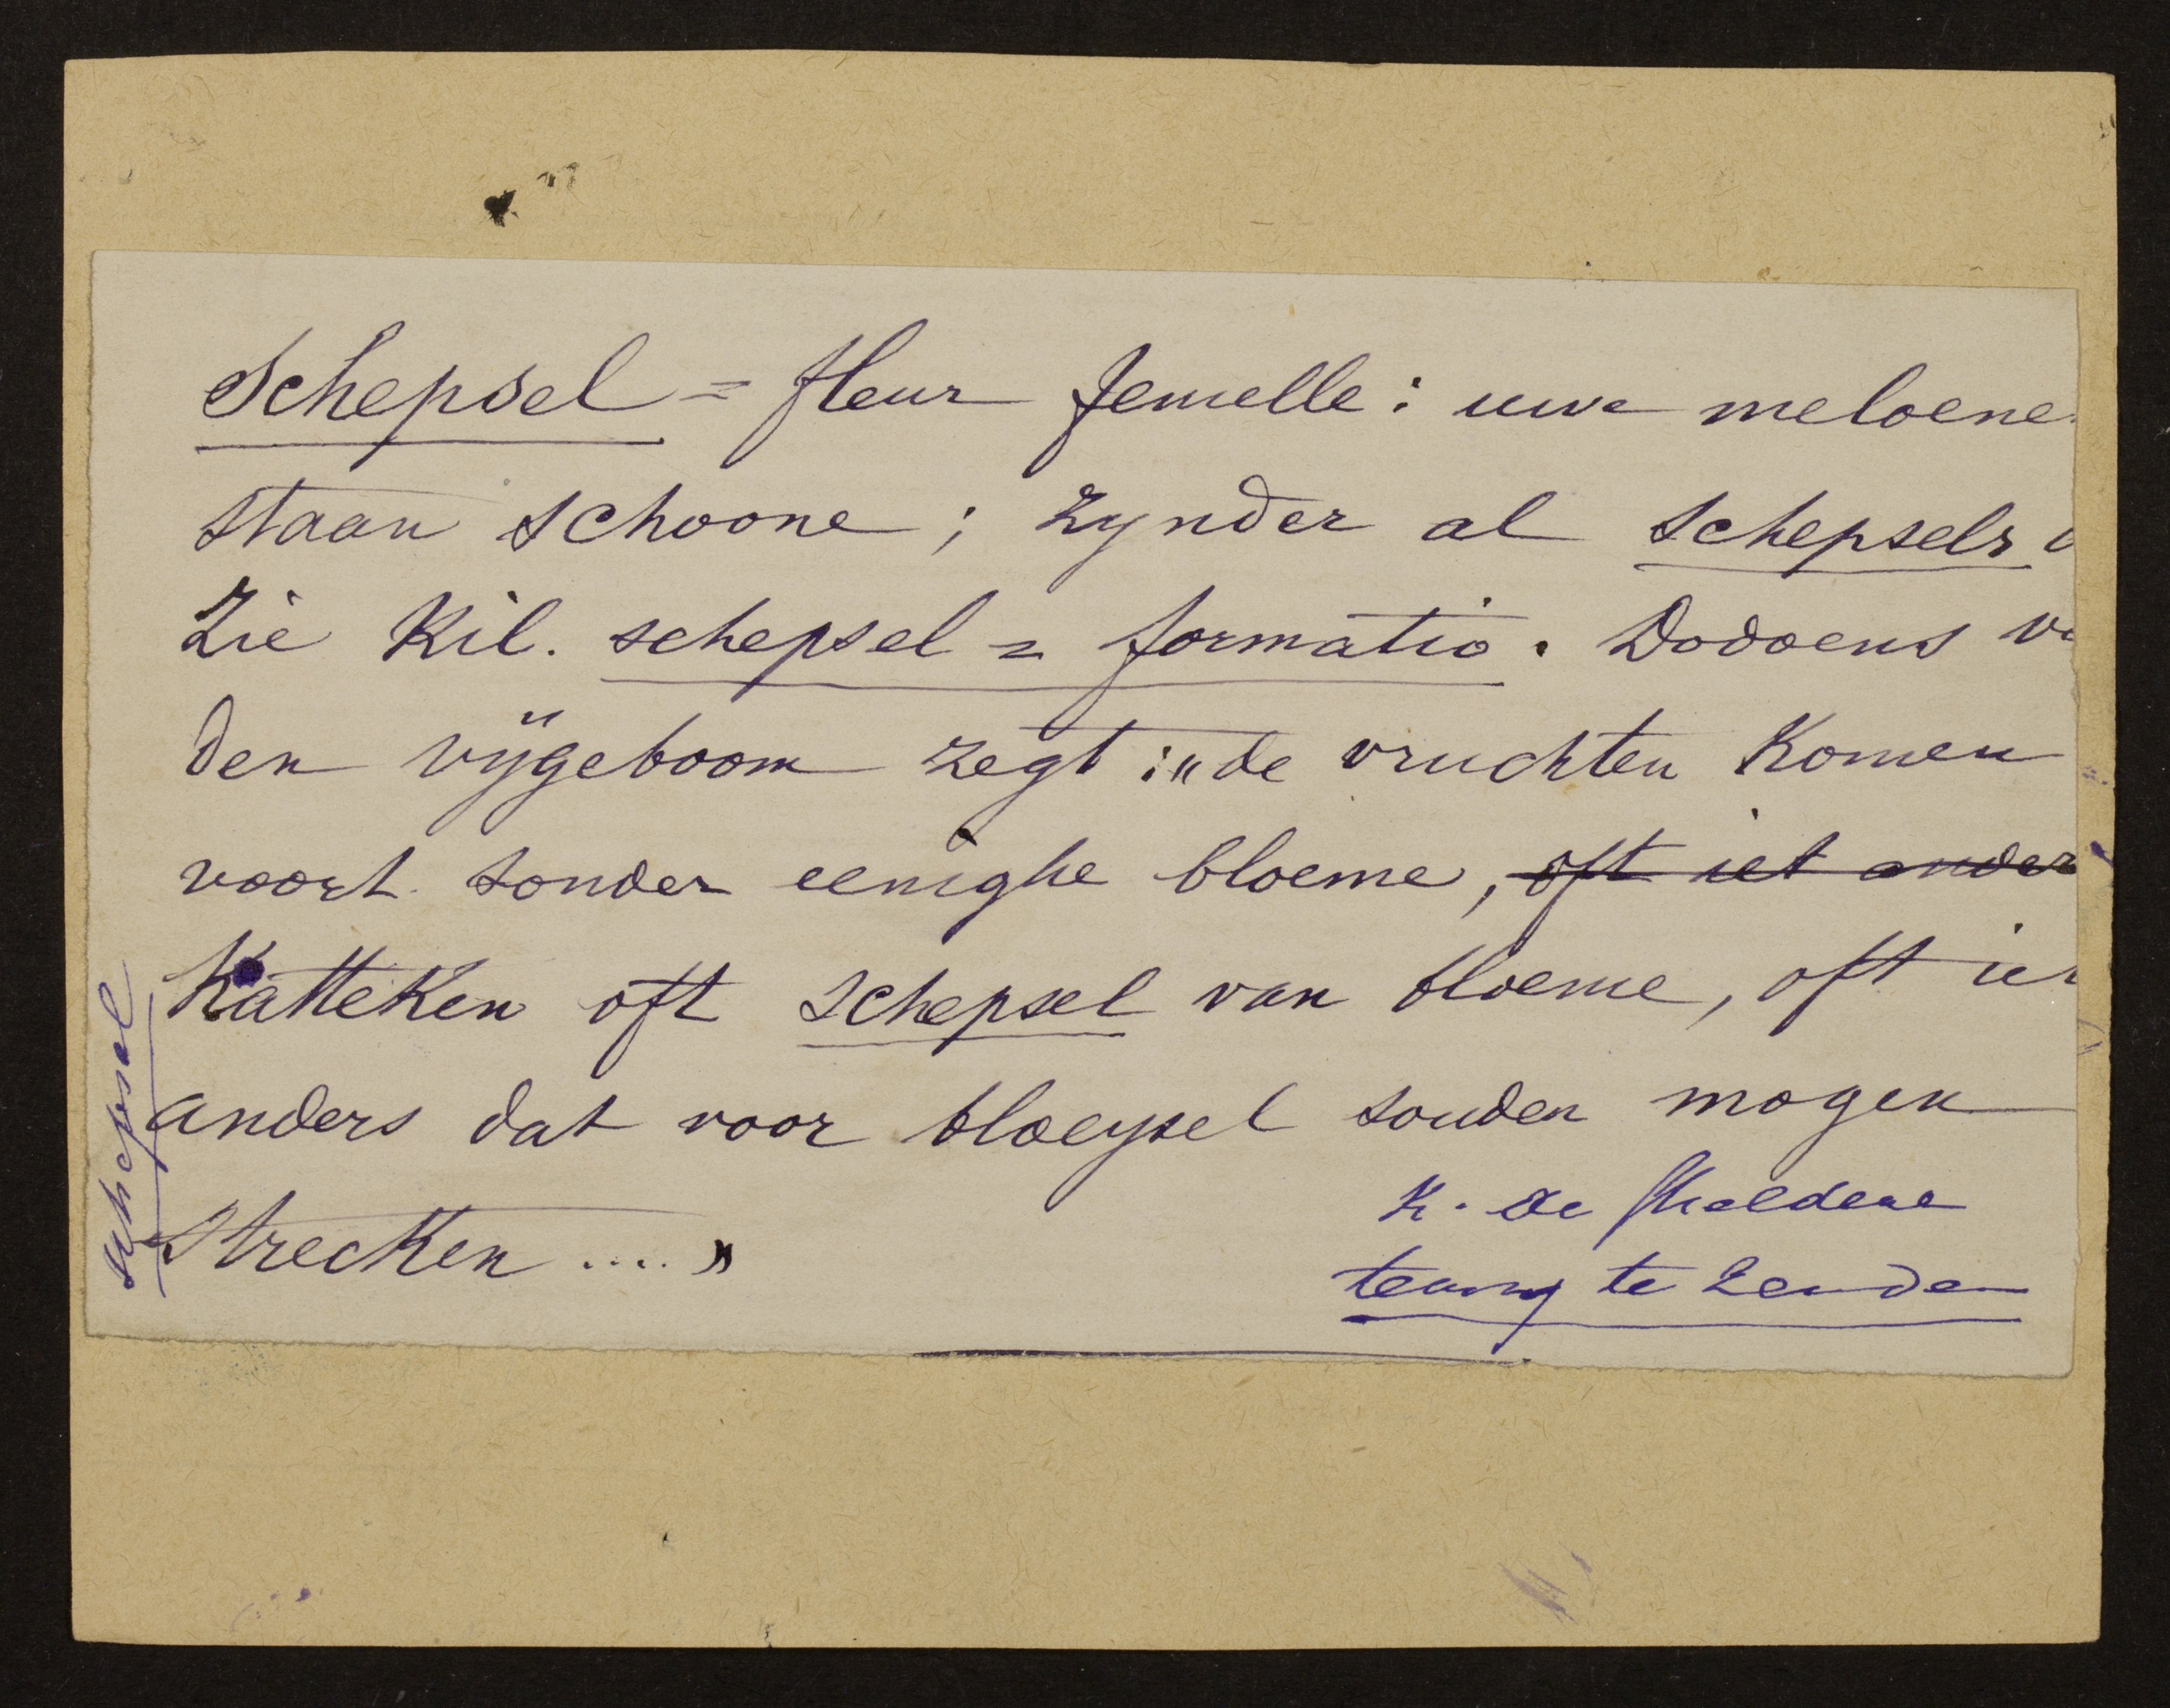 Schepsel = fleur femelle: uwe meloene
staan schoone; zynder al schepsels
Zie Kil. schepsel = formatio. Dodoens
den vijgeboom zegt: „de vruchten komen
voort sonder eenighe bloeme, oft iet ander
Katteken oft schepsel van bloeme, oft
anders dat voor bloeysel souden mogen
strecken .... "
K. De
te zenden
schepsel